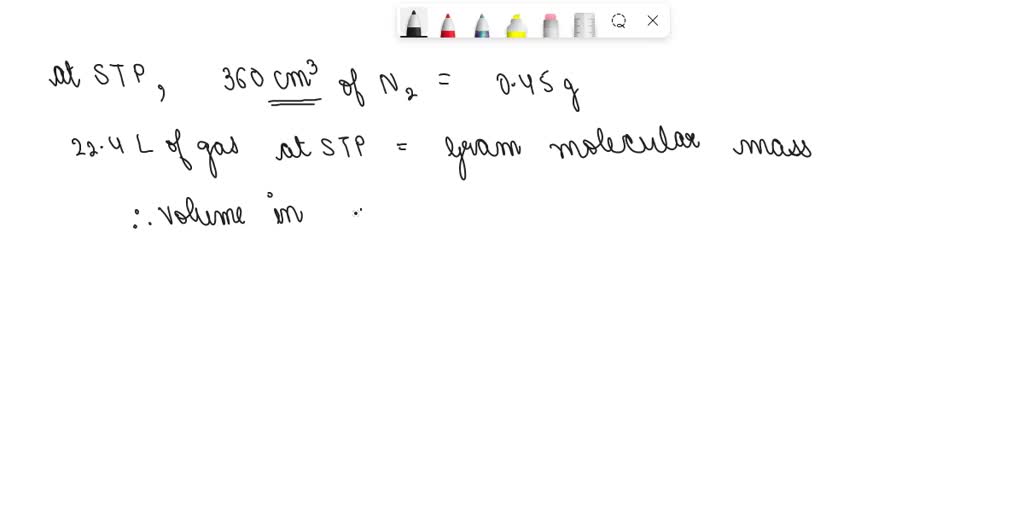 at STP, 360 cm³ of N₂ = 0.45 g
22.4 L of gas at STP = gram molecular mass
∴ volume in